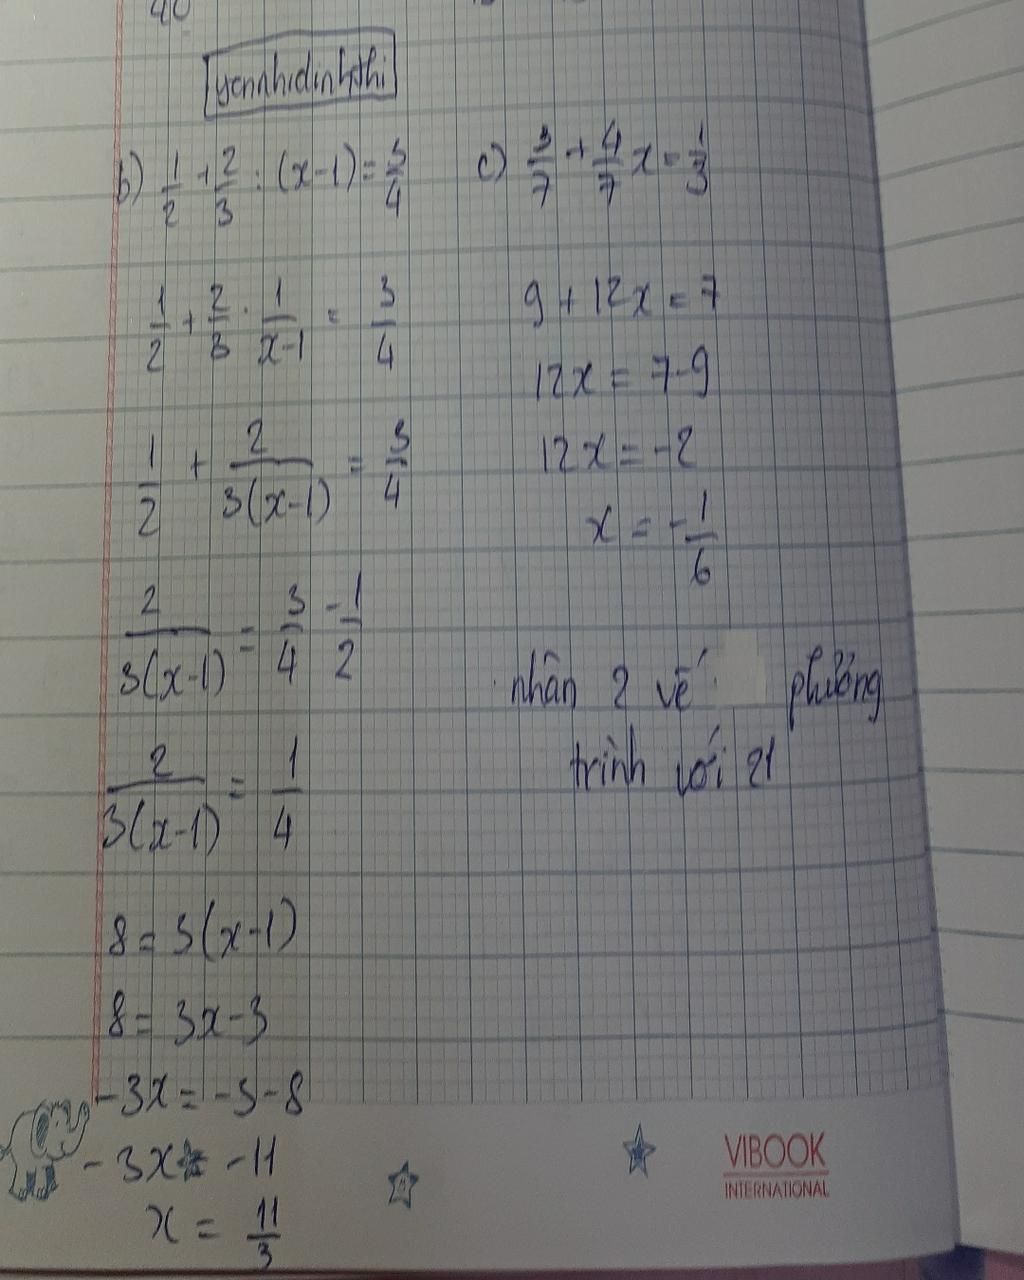 40
yennhidinhthi
b) 1/2 + 2/3 : (x-1) = 3/4
1/2 + 2/3 . 1/(x-1) = 3/4
1/2 + 2/(3(x-1)) = 3/4
2/(3(x-1)) = 3/4 - 1/2
2/(3(x-1)) = 1/4
8 = 3(x-1)
8 = 3x-3
-3x = -3-8
-3x = -11
x = 11/3
c) 3/7 + 4/7 x = 1/3
9 + 12x = 7
12x = 7-9
12x = -2
x = -1/6
nhân 2 vế phương
trình với 21
VIBOOK
INTERNATIONAL